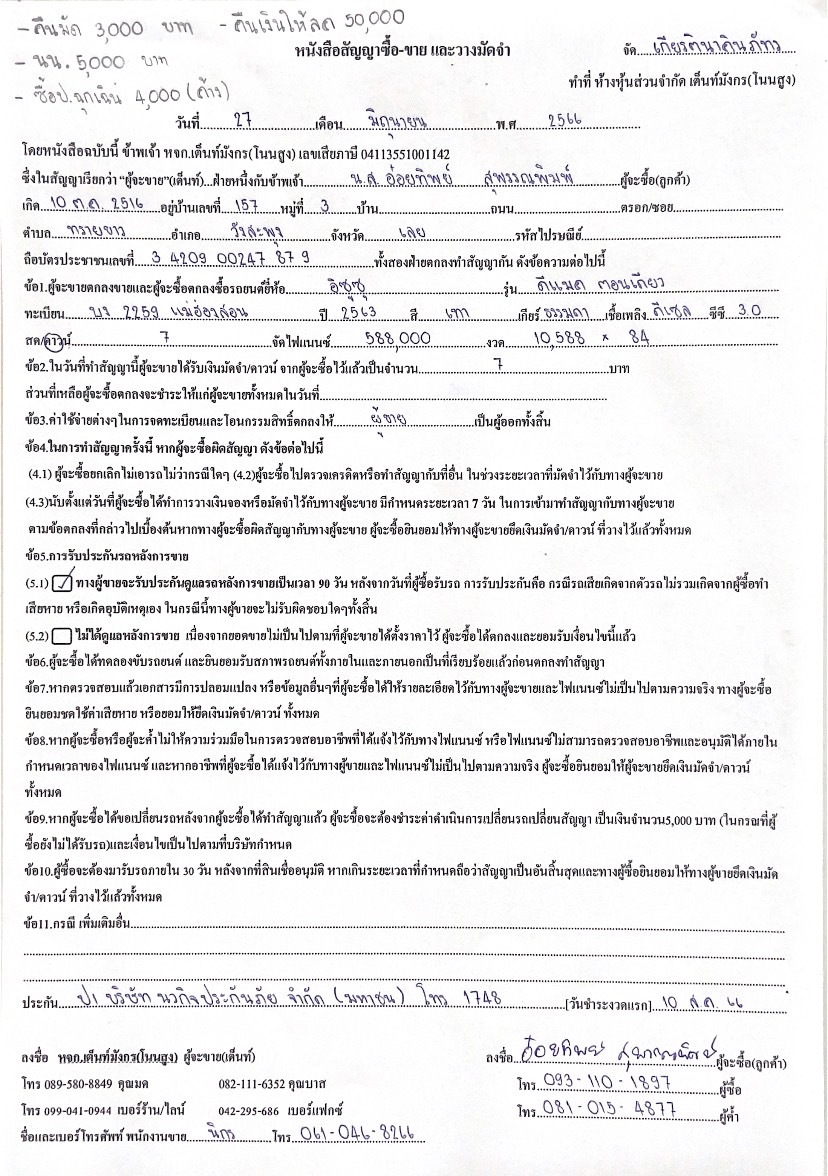 -คืนมัด 3,000 บาท -คืนเงินให้ลด 50,000
หนังสือสัญญาซื้อ-ขาย และวางมัดจำ จัด เกียรตินาคินภัทร
- นน. 5,000 บาท
ทำที่ ห้างหุ้นส่วนจำกัด เต็นท์มังกร(โนนสูง)
- ซื้อป.ฉุกเฉิน 4,000 (ค้าง)
วันที่ 27 เดือน มิถุนายน พ.ศ 2566
โดยหนังสือฉบับนี้ ข้าพเจ้า หจก.เต็นท์มังกร(โนนสูง) เลขเสียภาษี 04113551001142
ซึ่งในสัญญาเรียกว่า "ผู้จะขาย"(เต็นท์)...ฝ่ายหนึ่งกับข้าพเจ้า น.ส. อ้อยทิพย์ สุพรรณพิมพ์ ผู้จะซื้อ(ลูกค้า)
เกิด 10 ต.ค. 2516 อยู่บ้านเลขที่ 157 หมู่ที่ 3 บ้าน ถนน ตรอก/ซอย
ตำบล ทรายขาว อำเภอ วังสะพุง จังหวัด เลย รหัสไปรษณีย์
ถือบัตรประชาชนเลขที่ 3 4209 00247 87 9 ทั้งสองฝ่ายตกลงทำสัญญากัน ดังข้อความต่อไปนี้
ข้อ1.ผู้จะขายตกลงขายและผู้จะซื้อตกลงซื้อรถยนต์ยี่ห้อ อิซูซุ รุ่น ดีแมค ตอนเดียว
ทะเบียน บง 2259 แม่ฮ่องสอน ปี 2563 สี เทา เกียร์ ธรรมดา เชื้อเพลิง ดีเซล ซีซี 3.0
สด/ดาวน์ 7 จัดไฟแนนซ์ 588,000 งวด 10,588 × 84
ข้อ2.ในวันที่ทำสัญญานี้ผู้จะขายได้รับเงินมัดจำ/ดาวน์ จากผู้จะซื้อไว้แล้วเป็นจำนวน 7 บาท
ส่วนที่เหลือผู้จะซื้อตกลงจะชำระให้แก่ผู้จะขายทั้งหมดในวันที่
ข้อ3.ค่าใช้จ่ายต่างๆในการจดทะเบียนและโอนกรรมสิทธิ์ตกลงให้ ผู้ขาย เป็นผู้ออกทั้งสิ้น
ข้อ4.ในการทำสัญญาครั้งนี้ หากผู้จะซื้อผิดสัญญา ดังข้อต่อไปนี้
(4.1) ผู้จะซื้อยกเลิกไม่เอารถไม่ว่ากรณีใดๆ (4.2)ผู้จะซื้อไปตรวจเครดิตหรือทำสัญญากับที่อื่น ในช่วงระยะเวลาที่มัดจำไว้กับทางผู้จะขาย
(4.3)นับตั้งแต่วันที่ผู้จะซื้อได้ทำการวางเงินจองหรือมัดจำไว้กับทางผู้จะขาย มีกำหนดระยะเวลา 7 วัน ในการเข้ามาทำสัญญากับทางผู้จะขาย
ตามข้อตกลงที่กล่าวไปเบื้องต้นหากทางผู้จะซื้อผิดสัญญากับทางผู้จะขาย ผู้จะซื้อยินยอมให้ทางผู้จะขายยึดเงินมัดจำ/ดาวน์ ที่วางไว้แล้วทั้งหมด
ข้อ5.การรับประกันรถหลังการขาย
(5.1) ทางผู้ขายจะรับประกันดูแลรถหลังการขายเป็นเวลา 90 วัน หลังจากวันที่ผู้ซื้อรับรถ การรับประกันคือ กรณีรถเสียเกิดจากตัวรถไม่รวมเกิดจากผู้ซื้อทำ
เสียหาย หรือเกิดอุบัติเหตุเอง ในกรณีนี้ทางผู้ขายจะไม่รับผิดชอบใดๆทั้งสิ้น
(5.2) ไม่ได้ดูแลหลังการขาย เนื่องจากยอดขายไม่เป็นไปตามที่ผู้จะขายได้ตั้งราคาไว้ ผู้จะซื้อได้ตกลงและยอมรับเงื่อนไขนี้แล้ว
ข้อ6.ผู้จะซื้อได้ทดลองขับรถยนต์ และยินยอมรับสภาพรถยนต์ทั้งภายในและภายนอกเป็นที่เรียบร้อยแล้วก่อนตกลงทำสัญญา
ข้อ7.หากตรวจสอบแล้วเอกสารมีการปลอมแปลง หรือข้อมูลอื่นๆที่ผู้จะซื้อได้ให้รายละเอียดไว้กับทางผู้จะขายและไฟแนนซ์ไม่เป็นไปตามความจริง ทางผู้จะซื้อ
ยินยอมชดใช้ค่าเสียหาย หรือยอมให้ยึดเงินมัดจำ/ดาวน์ ทั้งหมด
ข้อ8.หากผู้จะซื้อหรือผู้จะค้ำไม่ให้ความร่วมมือในการตรวจสอบอาชีพที่ได้แจ้งไว้กับทางไฟแนนซ์ หรือไฟแนนซ์ไม่สามารถตรวจสอบอาชีพและอนุมัติได้ภายใน
กำหนดเวลาของไฟแนนซ์ และหากอาชีพที่ผู้จะซื้อได้แจ้งไว้กับทางผู้ขายและไฟแนนซ์ไม่เป็นไปตามความจริง ผู้จะซื้อยินยอมให้ผู้จะขายยึดเงินมัดจำ/ดาวน์
ทั้งหมด
ข้อ9.หากผู้จะซื้อได้ขอเปลี่ยนรถหลังจากผู้จะซื้อได้ทำสัญญาแล้ว ผู้จะซื้อจะต้องชำระค่าดำเนินการเปลี่ยนรถเปลี่ยนสัญญา เป็นเงินจำนวน5,000 บาท (ในกรณีที่ผู้
ซื้อยังไม่ได้รับรถ)และเงื่อนไขเป็นไปตามที่บริษัทกำหนด
ข้อ10.ผู้ซื้อจะต้องมารับรถภายใน 30 วัน หลังจากที่สินเชื่ออนุมัติ หากเกินระยะเวลาที่กำหนดถือว่าสัญญาเป็นอันสิ้นสุดและทางผู้ซื้อยินยอมให้ทางผู้ขายยึดเงินมัด
จำ/ดาวน์ ที่วางไว้แล้วทั้งหมด
ข้อ11.กรณี เพิ่มเติมอื่น
ประกัน ป1 บริษัท นวกิจประกันภัย จำกัด (มหาชน) โทร 1748 [วันชำระงวดแรก] 10 ส.ค. 66
ลงชื่อ หจก.เต็นท์มังกร(โนนสูง) ผู้จะขาย(เต็นท์) ลงชื่อ อ้อยทิพย์ สุพรรณพิมพ์ ผู้จะซื้อ(ลูกค้า)
โทร 089-580-8849 คุณมด 082-111-6352 คุณบาส โทร 093-110-1897 ผู้ซื้อ
โทร 099-041-0944 เบอร์ร้าน/ไลน์ 042-295-686 เบอร์แฟกซ์ โทร 081-015-4877 ผู้ค้ำ
ชื่อและเบอร์โทรศัพท์ พนักงานขาย นิกร โทร 061-046-8266